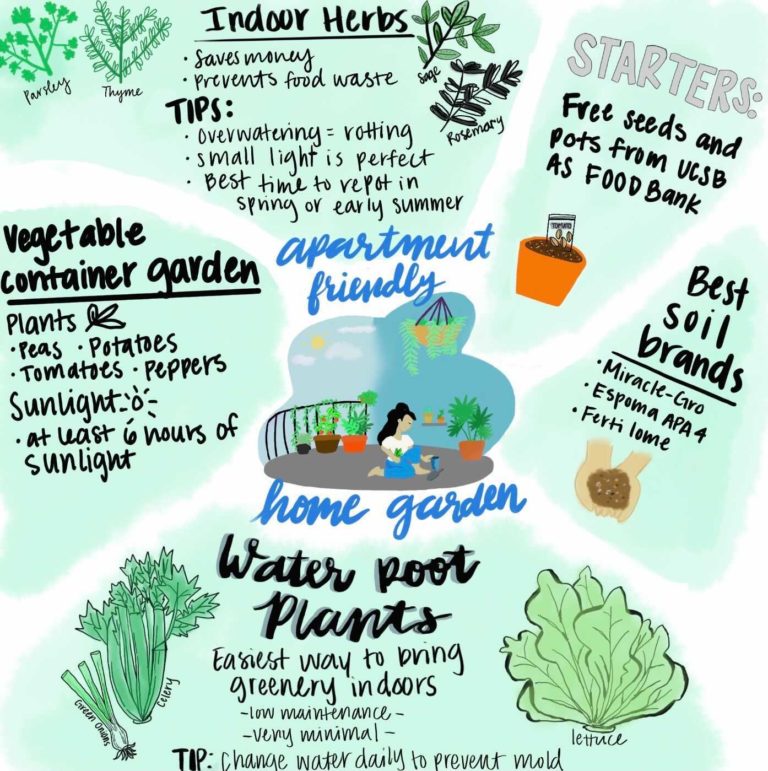 Indoor Herbs
• Saves money
• Prevents food waste
TIPS:
• Overwatering = rotting
• small light is perfect
• Best time to repot in
spring or early summer
Parsley
Thyme
Sage
Rosemary
STARTERS:
Free seeds and
pots from UCSB
AS FOOD Bank
TOMATO
Vegetable
container garden
Plants
• Peas • Potatoes
• Tomatoes • Peppers
Sunlight
• at least 6 hours of
sunlight
apartment
friendly
home garden
Best
soil
brands
• Miracle-Gro
• Espoma APA4
• Ferti lome
Water Root
Plants
Easiest way to bring
greenery indoors
- low maintenance -
- very minimal -
TIP: Change water daily to prevent mold
Green Onions
Celery
lettuce